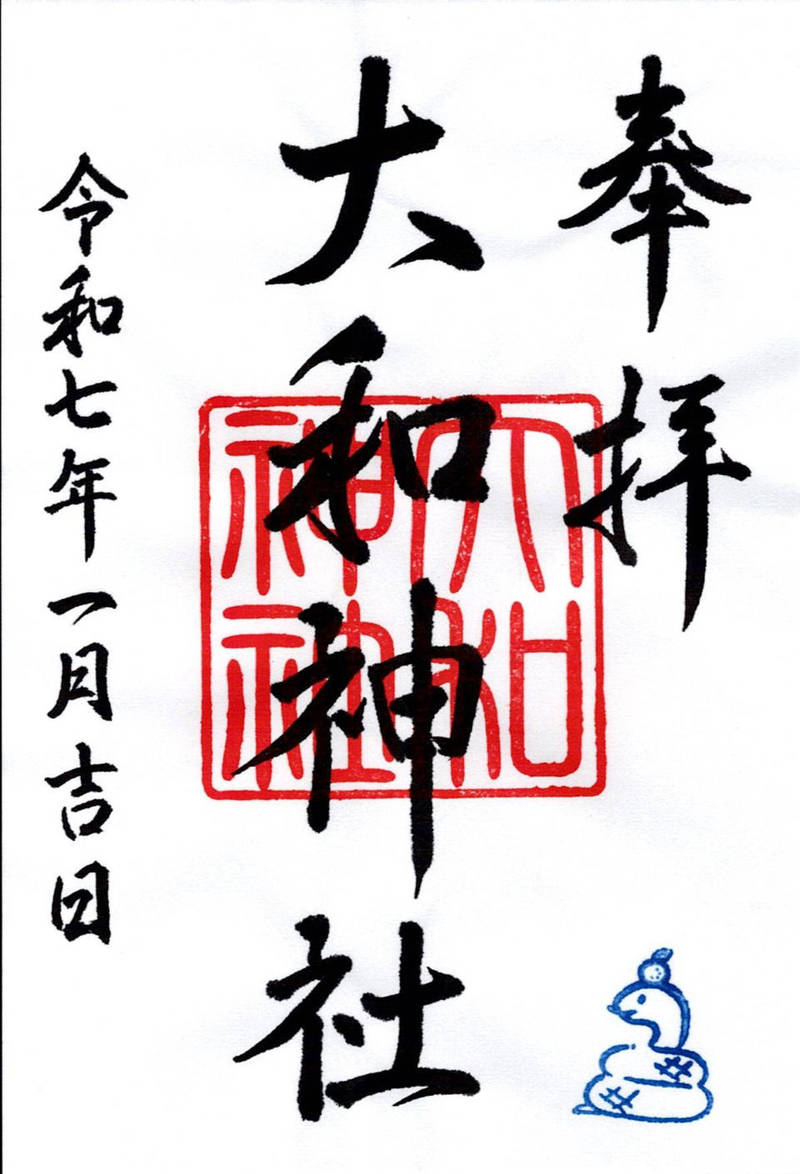 奉拝
大和神社
大和
神社
令和七年一月吉日